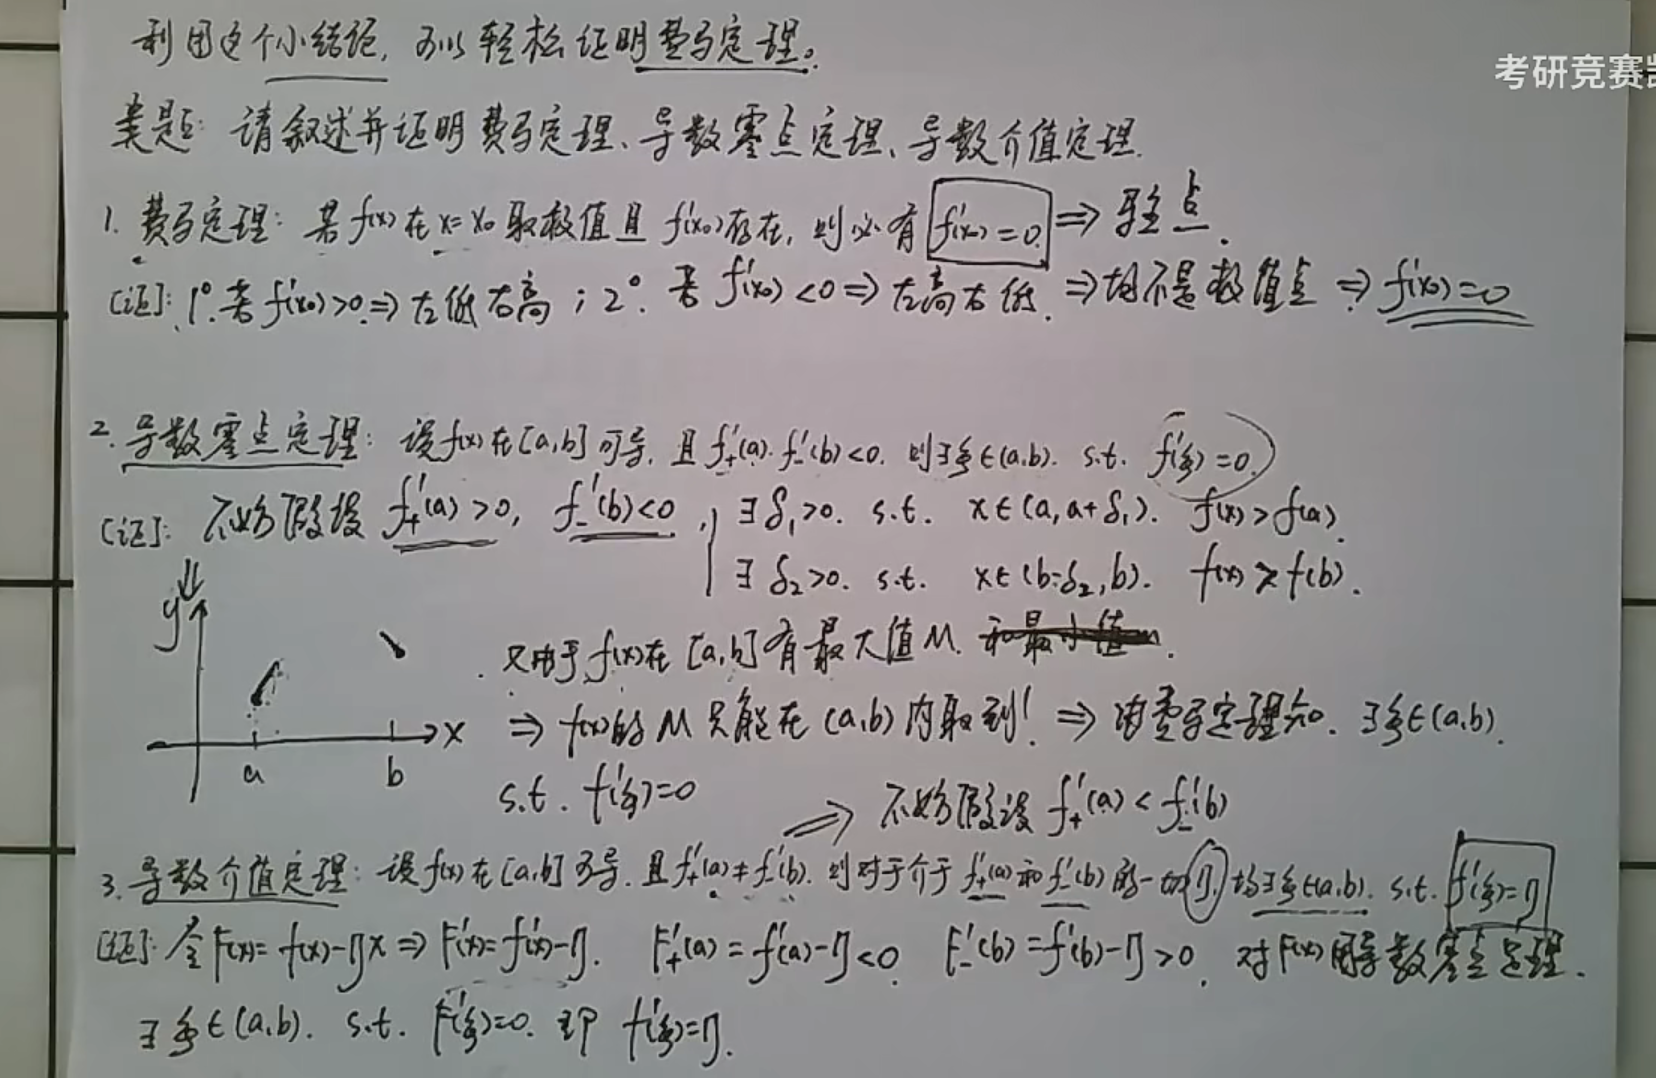 利用这个小结论，可以轻松证明费马定理。
考研竞赛凯
类题：请叙述并证明费马定理、导数零点定理、导数介值定理.
1. 费马定理：若f(x)在x=x₀取极值且f'(x₀)存在，则必有f'(x₀)=0 ⇒ 驻点.
[证]: 1°.若f'(x₀)>0 ⇒ 左低右高；2°. 若f'(x₀)<0 ⇒ 左高右低. ⇒ 均不是极值点 ⇒ f'(x₀)=0
2. 导数零点定理：设f(x)在[a,b]可导，且f₊'(a)·f₋'(b)<0. 则∃ξ∈(a,b). s.t. f'(ξ)=0.
[证]: 不妨假设 f₊'(a)>0, f₋'(b)<0, ∃δ₁>0. s.t. x∈(a,a+δ₁). f(x)>f(a).
∃δ₂>0. s.t. x∈(b-δ₂,b). f(x)>f(b).
y
又由于f(x)在[a,b]有最大值M.
⇒ f(x)的M只能在(a,b)内取到! ⇒ 由费马定理知. ∃ξ∈(a,b).
x
a b
s.t. f'(ξ)=0
⇒ 不妨假设 f₊'(a)<f₋'(b)
3. 导数介值定理：设f(x)在[a,b]可导. 且f₊'(a)≠f₋'(b). 则对于介于f₊'(a)和f₋'(b)的一切η, 均∃ξ∈(a,b). s.t. f'(ξ)=η
[证]: 令F(x)=f(x)-ηx ⇒ F'(x)=f'(x)-η. F₊'(a)=f'(a)-η<0. F₋'(b)=f'(b)-η>0. 对F(x)用导数零点定理.
∃ξ∈(a,b). s.t. F'(ξ)=0. 即 f'(ξ)=η.